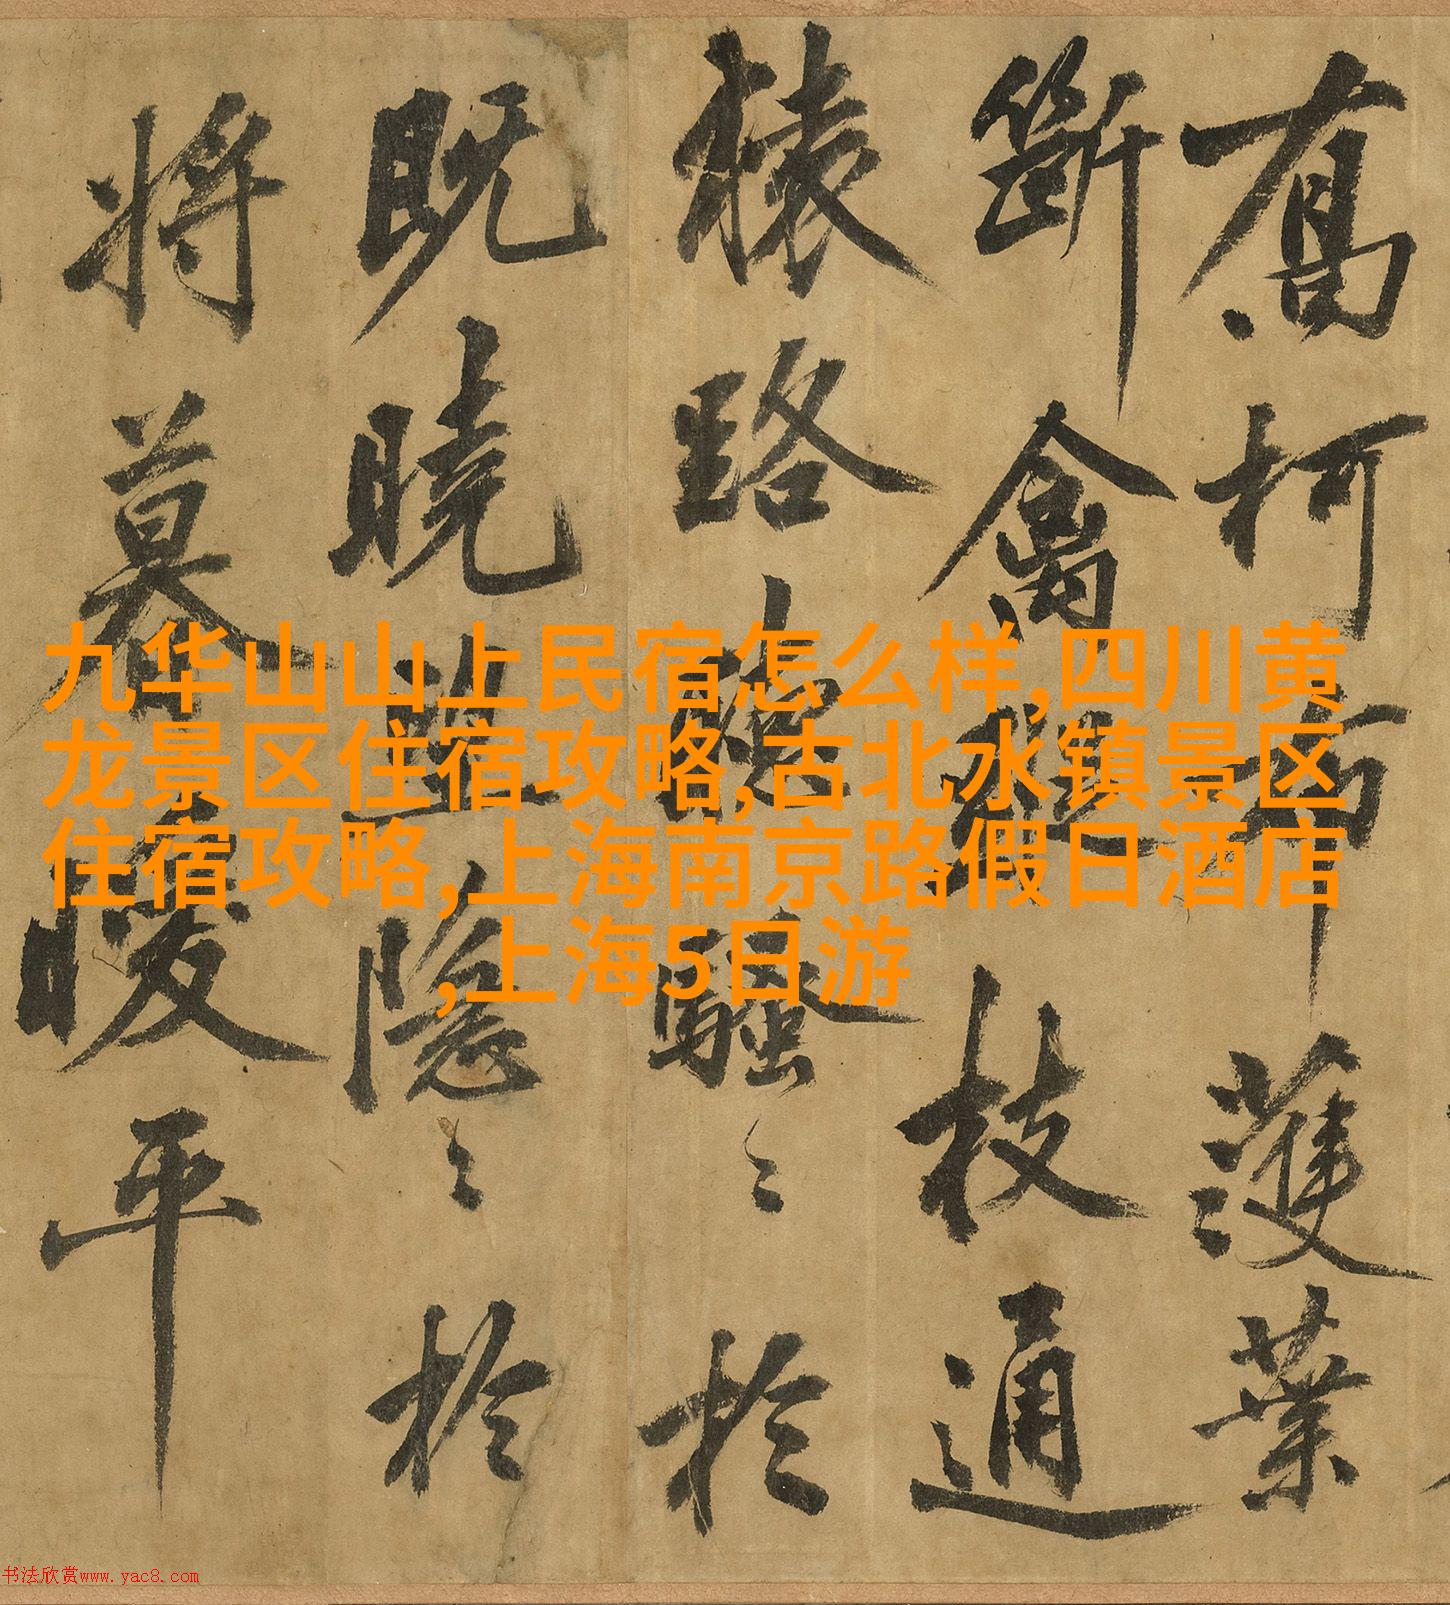 喬柯布濩葉
斷禽蹤枝通
猿路聽騷〻於
既曉望隱〻於
將暮暖平
九华山山上民宿怎么样,四川黄
龙景区住宿攻略,古北水镇景区
住宿攻略,上海南京路假日酒店
,上海5日游
书法欣赏www.yac8.com